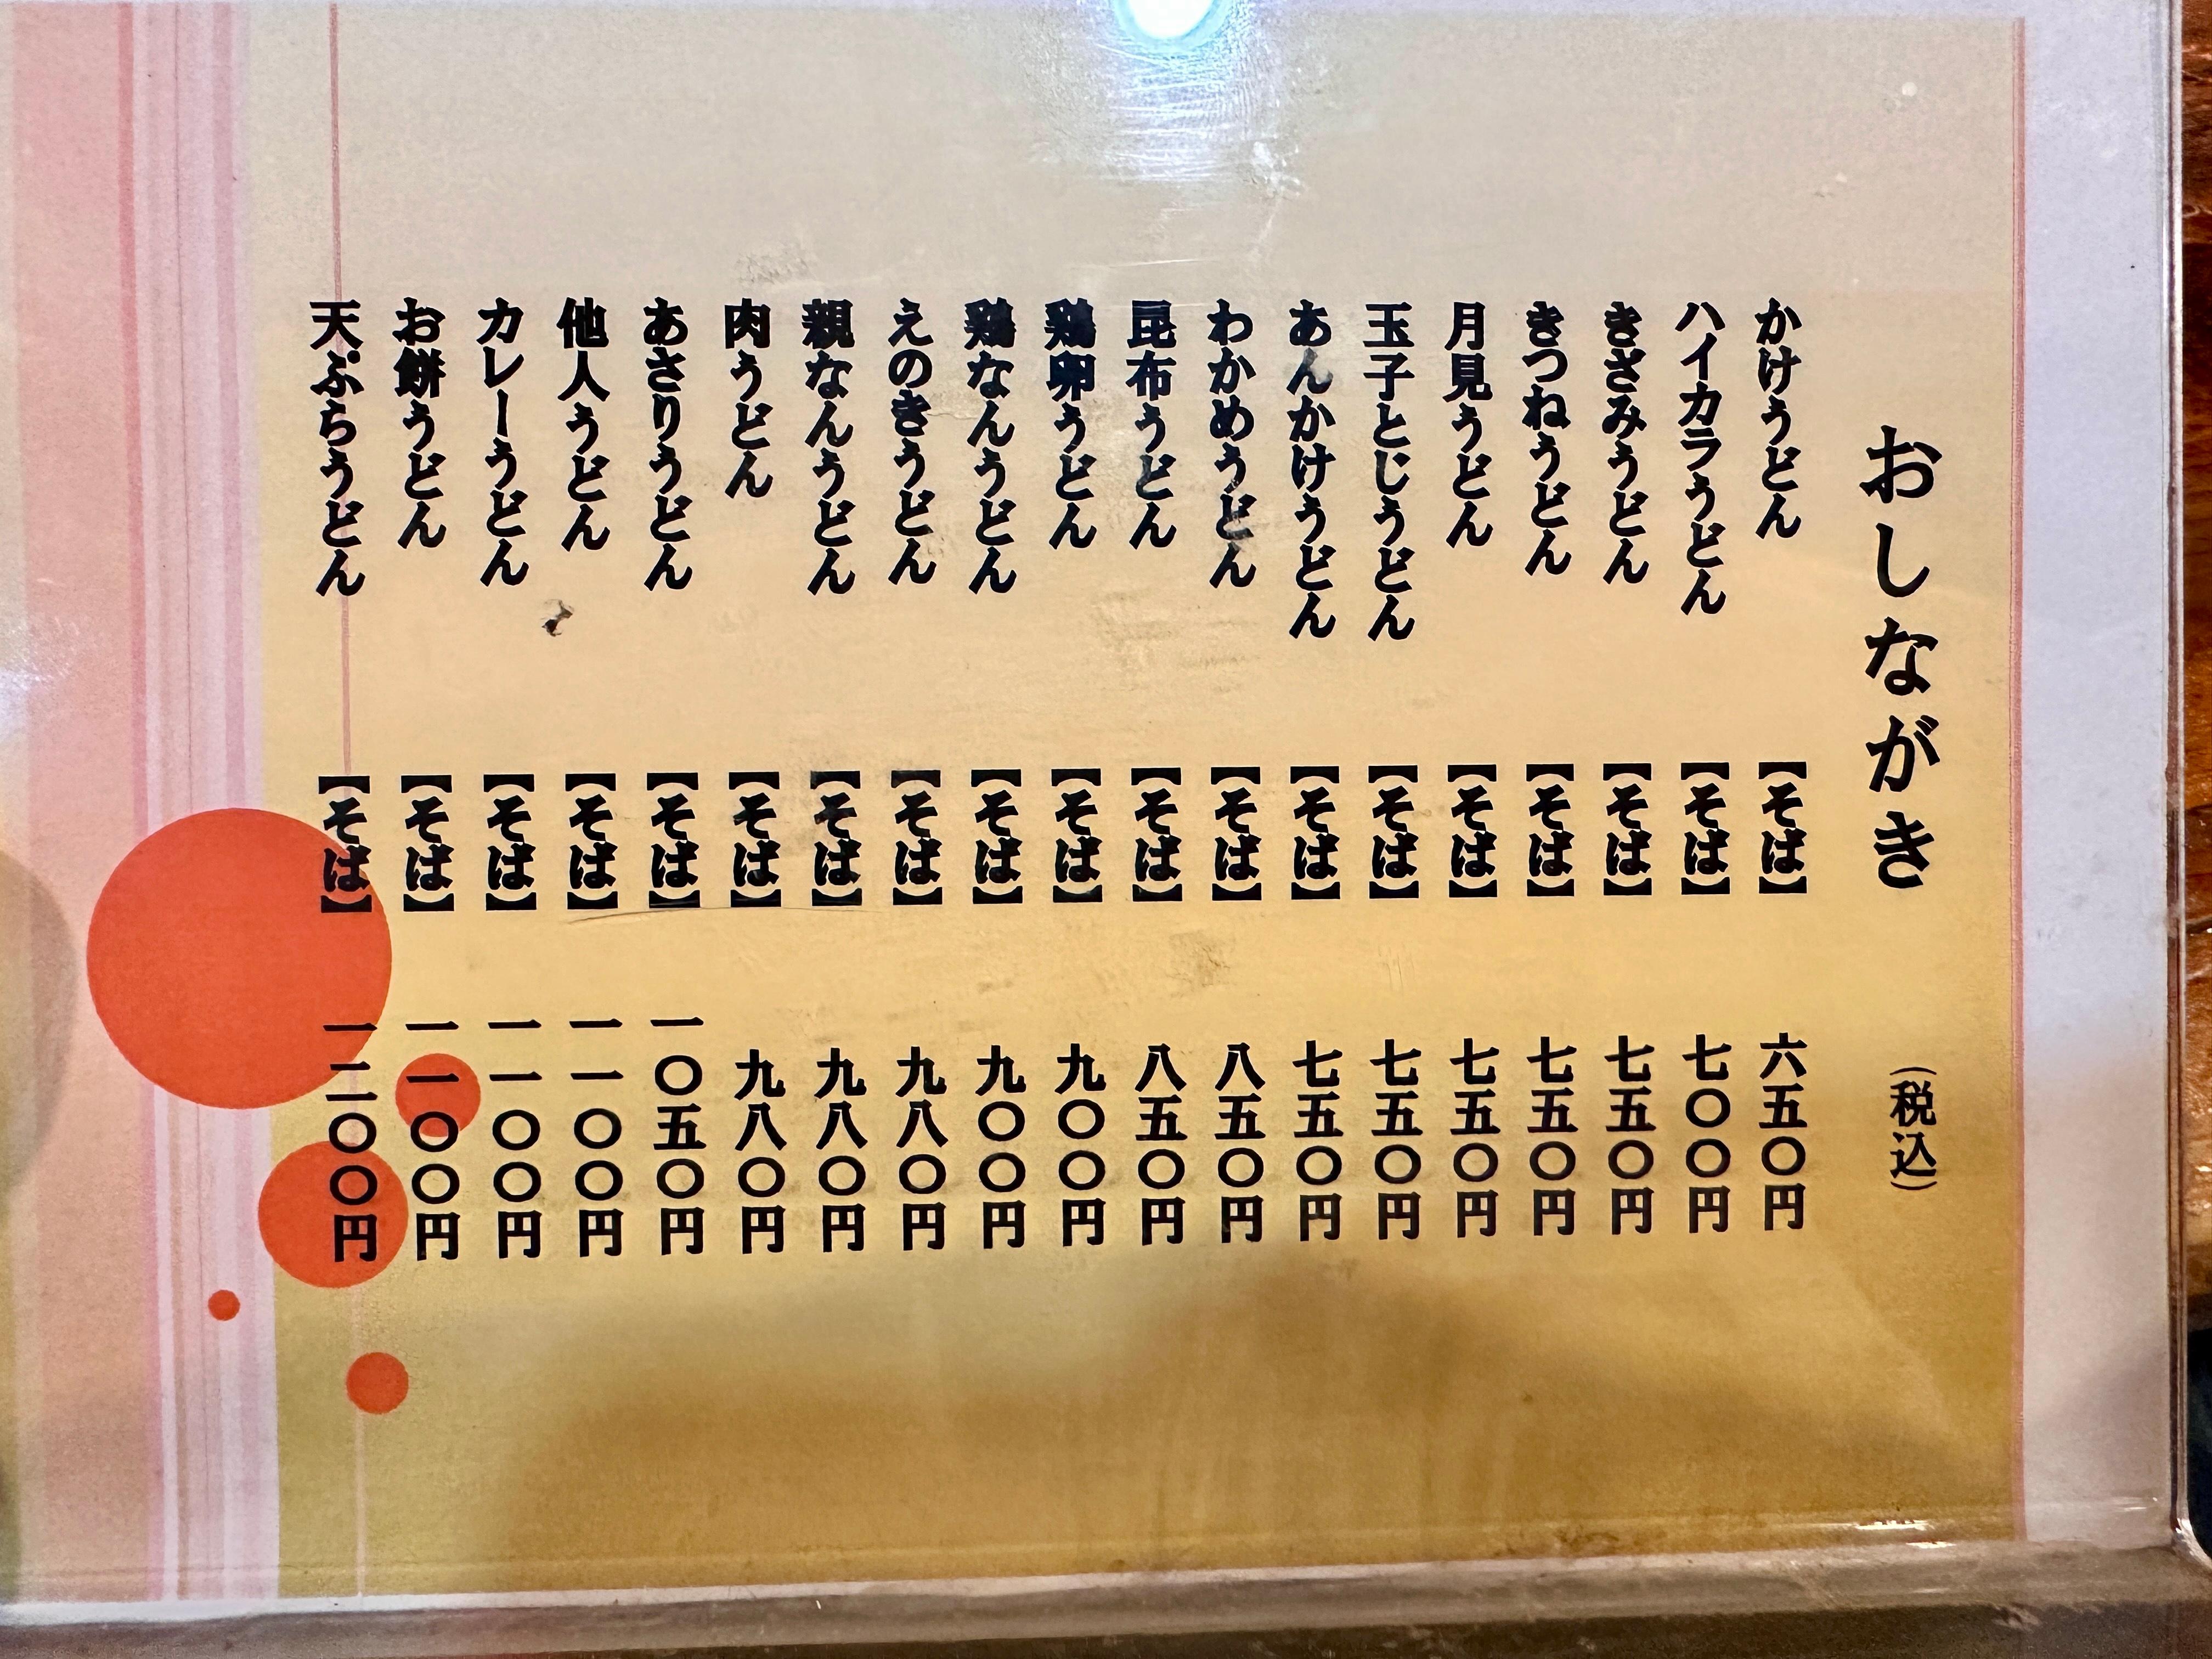 おしながき （税込）
かけうどん 【そば】 六五〇円
ハイカラうどん 【そば】 七〇〇円
きざみうどん 【そば】 七五〇円
きつねうどん 【そば】 七五〇円
月見うどん 【そば】 七五〇円
玉子とじうどん 【そば】 七五〇円
あんかけうどん 【そば】 七五〇円
わかめうどん 【そば】 八五〇円
昆布うどん 【そば】 八五〇円
鶏卵うどん 【そば】 九〇〇円
鶏なんうどん 【そば】 九〇〇円
えのきうどん 【そば】 九八〇円
親なんうどん 【そば】 九八〇円
肉うどん 【そば】 九八〇円
あさりうどん 【そば】 一〇五〇円
他人うどん 【そば】 一一〇〇円
カレーうどん 【そば】 一一〇〇円
お餅うどん 【そば】 一一〇〇円
天ぷらうどん 【そば】 一二〇〇円